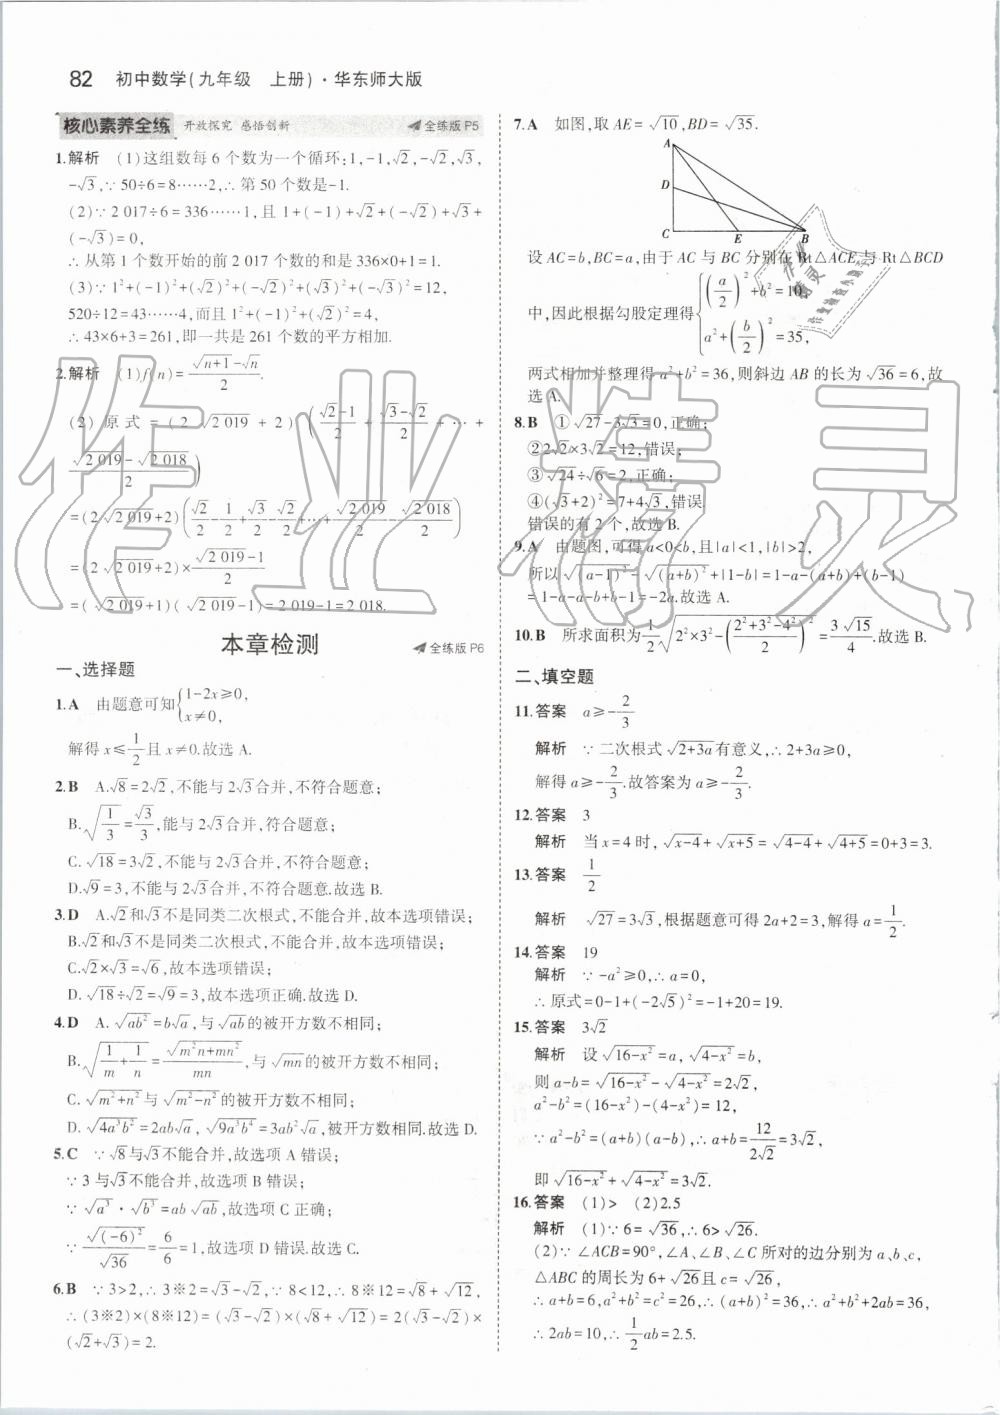 82 初中数学(九年级 上册)·华东师大版
核心素养全练 开放探究 感悟创新 全练版 P5
1.解析 (1)这组数每 6 个数为一个循环:1,-1,√2,-√2,√3,
-√3,∵ 50÷6=8……2,∴ 第 50 个数是-1.
(2)∵ 2 017÷6=336……1,且 1+(-1)+√2+(-√2)+√3+
(-√3)=0,
∴ 从第 1 个数开始的前 2 017 个数的和是 336×0+1=1.
(3)∵ 1²+(-1)²+(√2)²+(-√2)²+(√3)²+(-√3)²=12,
520÷12=43……4,而且 1²+(-1)²+(√2)²=4,
∴ 43×6+3=261,即一共是 261 个数的平方相加.
2.解析 (1)f(n)=(√(n+1)-√n)/2.
(2) 原式 = (2√2 019+2)((√2-1)/2+(√3-√2)/2+…+
(√2 019-√2 018)/2)
=(2√2 019+2)(√2/2-1/2+√3/2-√2/2+…+√2 019/2-√2 018/2)
=(2√2 019+2)×(√2 019-1)/2
=(√2 019+1)(√2 019-1)=2 019-1=2 018.
本章检测 全练版 P6
一、选择题
1.A 由题意可知{1-2x≥0,
x≠0,
解得 x≤1/2且 x≠0.故选 A.
2.B A.√8=2√2,不能与 2√3合并,不符合题意;
B.√(1/3)=√3/3,能与 2√3合并,符合题意;
C.√18=3√2,不能与 2√3合并,不符合题意;
D.√9=3,不能与 2√3合并,不符合题意.故选 B.
3.D A.√2和√3不是同类二次根式,不能合并,故本选项错误;
B.√2和√3不是同类二次根式,不能合并,故本选项错误;
C.√2×√3=√6,故本选项错误;
D.√18÷√2=√9=3,故本选项正确.故选 D.
4.D A.√(ab²)=b√a,与√(ab)的被开方数不相同;
B.√(1/m+1/n)=√(m²n+mn²)/mn,与√(mn)的被开方数不相同;
C.√(m²+n²)与√(m²-n²)的被开方数不相同;
D.√(4a³b²)=2ab√a,√(9a³b⁴)=3ab²√a,被开方数相同.故选 D.
5.C ∵ √8与√3不能合并,故选项 A 错误;
∵ 3 与√3不能合并,故选项 B 错误;
∵ √(a³)·√(b³)=ab√(ab),故选项 C 正确;
∵ √((-6)²)/√36=6/6=1,故选项 D 错误.故选 C.
6.B ∵ 3>2,∴ 3※2=√3-√2,∵ 8<12,∴ 8※12=√8+√12,
∴ (3※2)×(8※12)=(√3-√2)×(√8+√12)=2(√3-√2)×
(√2+√3)=2.
7.A 如图,取 AE=√10,BD=√35.
A
D
C E B
设 AC=b,BC=a,由于 AC 与 BC 分别在 Rt△ACE 与 Rt△BCD
中,因此根据勾股定理得{(a/2)²+b²=10,
a²+(b/2)²=35,
两式相加并整理得 a²+b²=36,则斜边 AB 的长为√36=6,故
选 A.
8.B ①√27-3√3=0,正确;
②2√2×3√2=12,错误;
③√24÷√6=2,正确;
④(√3+2)²=7+4√3,错误.
错误的有 2 个,故选 B.
9.A 由题图,可得 a<0<b,且|a|<1,|b|>2,
所以√((a-1)²)-√((a+b)²)+|1-b|=1-a-(a+b)+(b-1)
=1-a-a-b+b-1=-2a.故选 A.
10.B 所求面积为1/2√(2²×3²-((2²+3²-4²)/2)²)=3√15/4.故选 B.
二、填空题
11.答案 a≥-2/3
解析 ∵ 二次根式√(2+3a)有意义,∴ 2+3a≥0,
解得 a≥-2/3.故答案为 a≥-2/3.
12.答案 3
解析 当 x=4 时,√(x-4)+√(x+5)=√(4-4)+√(4+5)=0+3=3.
13.答案 1/2
解析 √27=3√3,根据题意可得 2a+2=3,解得 a=1/2.
14.答案 19
解析 ∵ -a²≥0,∴ a=0,
∴ 原式=0-1+(-2√5)²=-1+20=19.
15.答案 3√2
解析 设√(16-x²)=a,√(4-x²)=b,
则 a-b=√(16-x²)-√(4-x²)=2√2,
a²-b²=(16-x²)-(4-x²)=12,
∵ a²-b²=(a+b)(a-b),∴ a+b=12/2√2=3√2,
即√(16-x²)+√(4-x²)=3√2.
16.答案 (1)> (2)2.5
解析 (1)∵ 6=√36,∴ 6>√26.
(2)∵ ∠ACB=90°,∠A、∠B、∠C 所对的边分别为 a、b、c,
△ABC 的周长为 6+√26且 c=√26,
∴ a+b=6,a²+b²=c²=26,∴ (a+b)²=36,∴ a²+b²+2ab=36,
∴ 2ab=10,∴ 1/2ab=2.5.
作业精灵